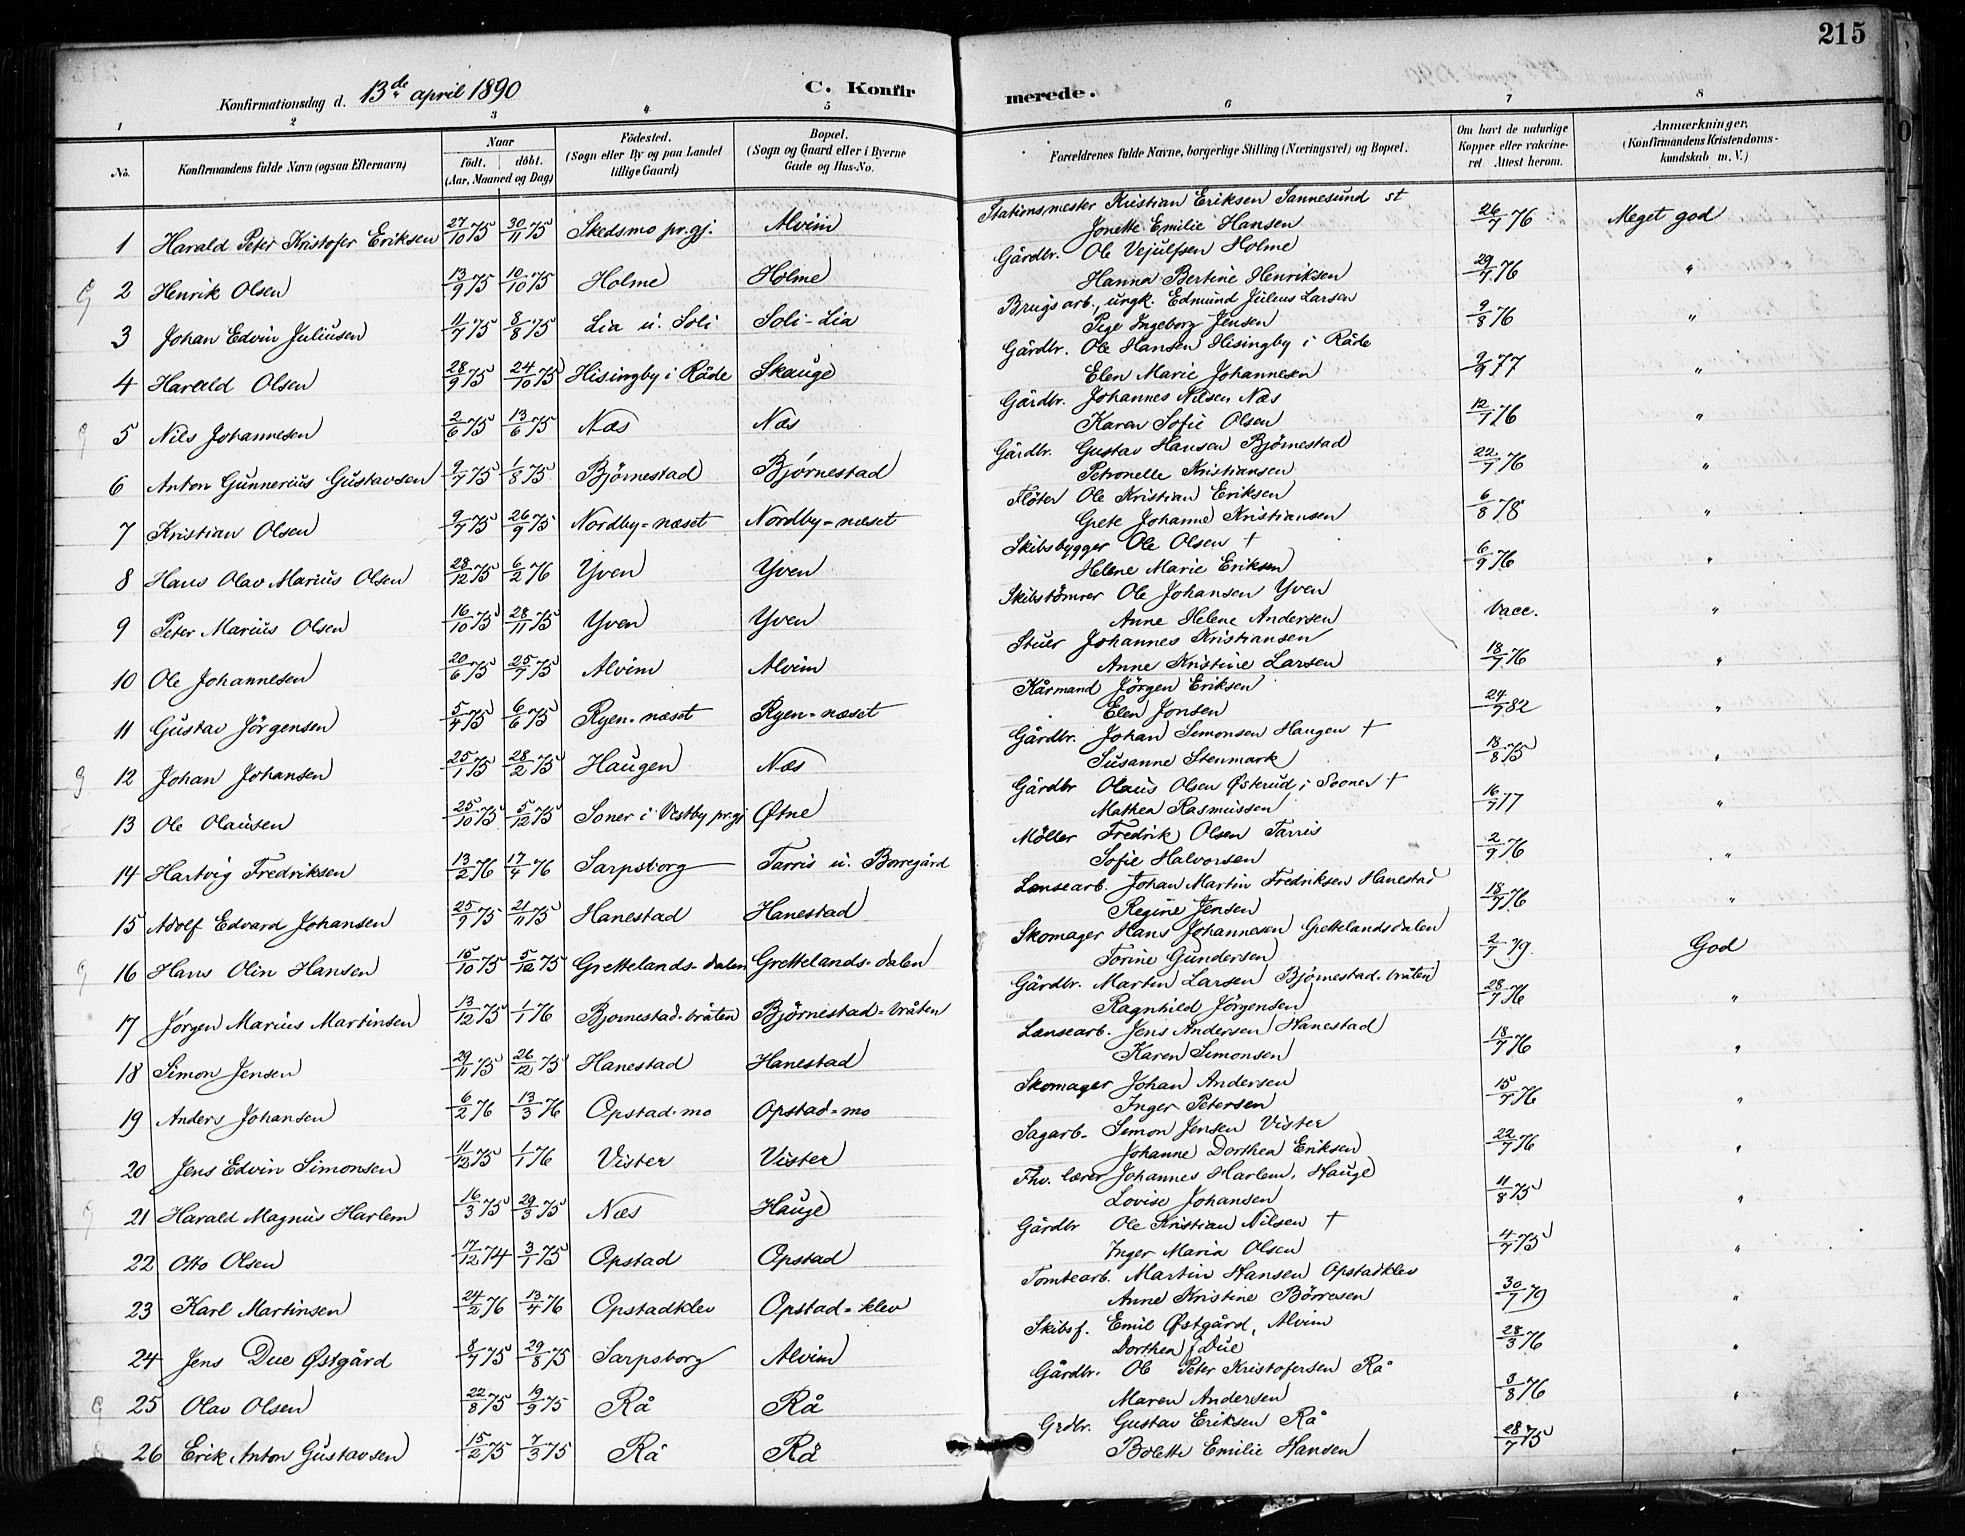 215
Konfirmationsdag d. 13de april 1890
C. Konfir merede.
1 2 3 4 5 6 7 8
No. Konfirmandens fulde Navn (ogsaa Efternavn) Naar født. døbt. (Aar, Maaned og Dag) Födested. (Sogn eller By og paa Landet tillige Gaard) Bopæl. (Sogn og Gaard eller i Byerne Gade og Hus-No. Forældrenes fulde Navne, borgerlige Stilling (Næringsvei) og Bopæl. Om havt de naturlige Kopper eller vakcineret Attest herom. Anmærkninger. (Konfirmandens Kristendomskundskab m. V.)
1 Harald Peter Kristofer Eriksen 27/10 75 30/11 75 Skedsmo pr.gj. Alvim Stationsmester Kristian Eriksen Sannesund st 26/7 76 Meget god
Jonette Emilie Hansen
2 Henrik Olsen 13/9 75 10/10 75 Holme Holme Gårdbr. Ole Vejulfsen Holme 29/7 76 "
Hanna Bertine Henriksen
3 Johan Edvin Juliusen 11/7 75 8/8 75 Lia u. Soli Soli-Lia Brugsarb., ungk. Edmund Julius Larsen 9/8 76 "
Pige Ingeborg Jensen
4 Harald Olsen 28/9 75 24/10 75 Hisingby i Råde Skauge Gårdbr. Ole Hansen Hisingby i Råde 9/9 77 "
Elen Marie Johannesen
5 Nils Johannesen 2/6 75 13/6 75 Næs Næs Gårdbr. Johannes Nilsen Næs 12/7 76 "
Karen Sofie Olsen
6 Anton Gunnerius Gustavsen 9/7 75 1/8 75 Bjørnestad Bjørnestad Gårdbr. Gustav Hansen Bjørnestad 22/7 76 "
Petronelle Kristiansen
7 Kristian Olsen 9/9 75 26/9 75 Nordby=næset Nordby=næset Flöter Ole Kristian Eriksen 6/8 78 "
Grete Johanne Kristiansen
8 Hans Olav Marius Olsen 28/12 75 6/2 76 Yven Yven Skibsbygger Ole Olsen † 6/9 76 "
Helene Marie Eriksen
9 Peter Marius Olsen 16/10 75 28/11 75 Yven Yven Skibstömrer Ole Johansen Yven Vacc. "
Anne Helene Andersen
10 Ole Johannesen 20/6 75 25/7 75 Alvim Alvim Stuer Johannes Kristiansen 18/7 76 "
Anne Kristine Larsen
11 Gustav Jörgensen 5/4 75 6/6 75 Ryen=næset Ryen=næset Kårmand Jörgen Eriksen 24/9 82 "
Elen Jonsen
12 Johan Johansen 25/1 75 28/2 75 Haugen Næs Gårdbr. Johan Simonsen Haugen † 18/8 75 "
Susanne Stenmark
13 Ole Olausen 25/10 75 5/12 75 Soner i Vestby pr.gj Øtne Gårdbr Olaus Olsen Østerud, i Sooner † 16/7 77 "
Mathea Rasmussen
14 Hartvig Fredriksen 13/2 76 17/4 76 Sarpsborg Tarris u. Borregård Möller Fredrik Olsen Tarris 2/9 76 "
Sofie Halvorsen
15 Adolf Edvard Johansen 25/9 75 21/11 75 Hanestad Hanestad Lænsearb. Johan Martin Fredriksen Hanestad 18/7 76 "
Regine Jensen
16 Hans Olin Hansen 15/10 75 5/12 75 Grettelands=dalen Grettelands=dalen Skomager Hans Johannesen Grettelandsdalen 2/7 79. God
Torine Gundersen
17 Jørgen Marius Martinsen 13/12 75 1/1 76 Bjørnestad-bråten Bjørnestad=bråten Gårdbr. Martin Larsen Bjørnestad-bråten 28/7 76 "
Ragnhild Jørgensen
18 Simon Jensen 29/11 75 26/12 75 Hanestad Hanestad Lænsearb. Jens Andersen Hanestad 18/7 76 "
Karen Simonsen
19 Anders Johansen 6/2 76 13/3 76 Opstad-mo Opstad=mo Skomager Johan Andersen 15/7 76 "
Inger Petersen
20 Jens Edvin Simonsen 11/12 75 1/1 76 Vister Vister Sagarb. Simon Jensen Vister 22/7 76 "
Johanne Dorthea Eriksen
21 Harald Magnus Harlem 16/3 75 29/3 75 Næs Hauge Fhv. lærer Johannes Harlem, Hauge 11/8 75 "
Lovise Johansen
22 Otto Olsen 17/12 74 3/1 75 Opstad Opstad Gårdbr Ole Kristian Nilsen † 4/7 75 "
Inger Maria Olsen
23 Karl Martinsen 24/2 76 13/4 76 Opstadklev Opstad=klev Tomtearb. Martin Hansen Opstadklev 30/7 79 "
Anne Kristine Börresen
24 Jens Due Østgård 8/7 75 29/8 75 Sarpsborg Alvim Skibsf. Emil Østgård, Alvim 28/3 76 "
Dorthea f. Due
25 Olav Olsen 22/8 75 19/9 75 Rå Rå Gårdbr. Ole Peter Kristofersen Rå 3/8 76 "
Maren Andersen
26 Erik Anton Gustavsen 15/2 75 7/3 75 Rå Rå Grdbr. Gustav Eriksen Rå 28/7 75 "
Bolette Emilie Hansen